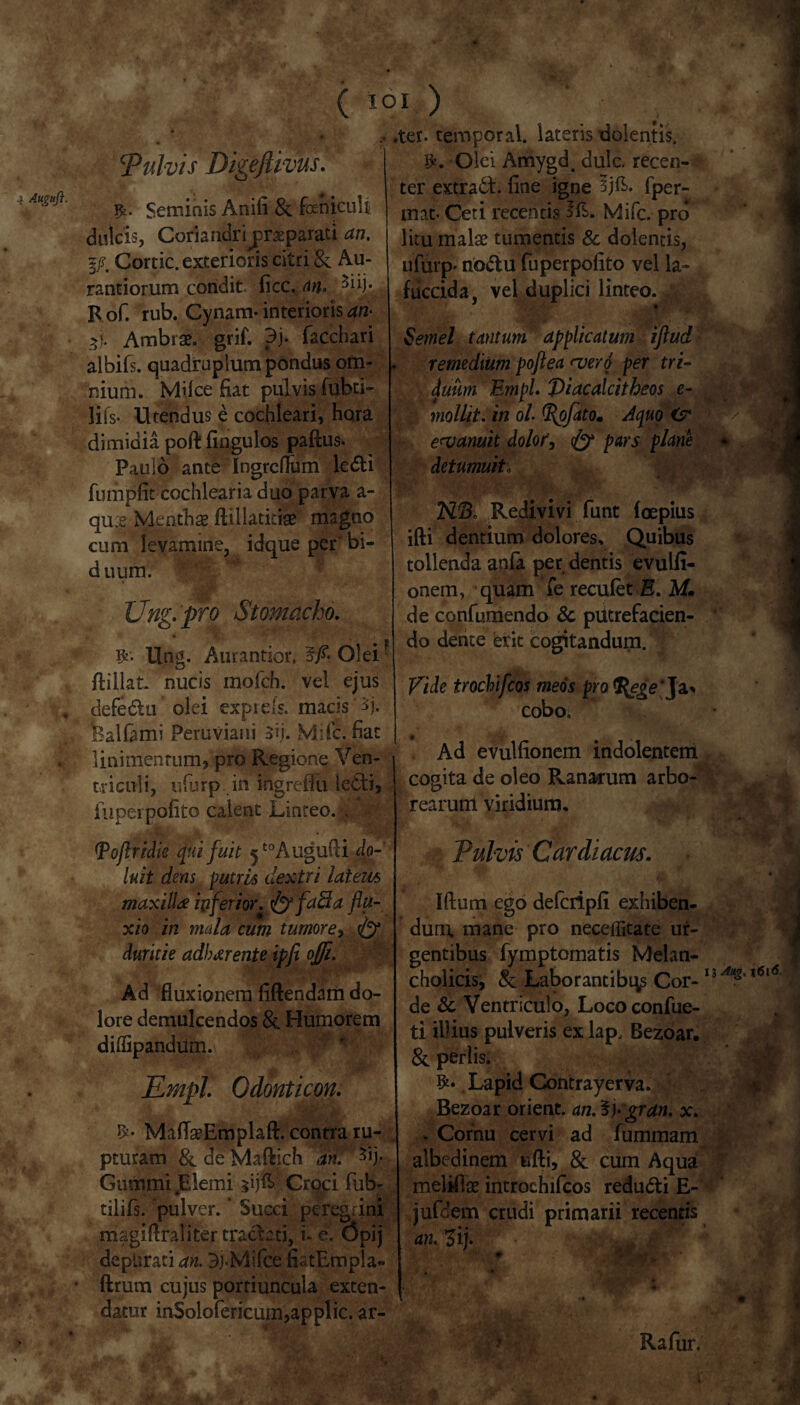 ( 101 )
Pulvis Digeſtivus.
4 Auguſt.
℞. Seminis Aniſi & fœniculi
dulcis, Coriandri præparati an.
℥ß. Cortic. exterioris citri & Au-
rantiorum condit. ſicc. an. ʒiij.
Roſ. rub. Cynam. interioris an.
ʒj. Ambræ. griſ. ℈j. ſacchari
albiſs. quadruplum pondus om-
nium. Miſce fiat pulvis ſubti-
liſs. Utendus è cochleari, hora
dimidiâ poſt ſingulos paſtus.
Paulò ante Ingreſſum lecti
ſumpſit cochlearia duo parva a-
quæ Menthæ ſtillatitiæ magno
cum levamine, idque per bi-
duum.
Ung. pro Stomacho.
℞. Ung. Aurantior. ℥ß. Olei
ſtillat. nucis moſch. vel ejus
defectu olei expreſs. macis ʒj.
Balſami Peruviani ʒij. Miſc. fiat
linimentum, pro Regione Ven-
triculi, uſurp. in ingreſſu lecti,
ſuperpoſito calent Linteo.
Poſtridie qui fuit 5to Auguſti do-
luit dens putris dextri lateus
maxillæ inferior. & facta flu-
xio in mala cum tumore, &
duritie adhærente ipſi oſſi.
Ad fluxionem ſiſtendam do-
lore demulcendos & Humorem
diſſipandum.
Empl. Odonticon.
℞. Maſſæ Emplaſt. contra ru-
pturam & de Maſtich an. ʒij.
Gummi Elemi ʒijß Croci ſub-
tiliſs. pulver. Succi peregrini
magiſtraliter tractati, i. e. Opij
depurati an. ℈j. Miſce fiat Empla-
ſtrum cujus portiuncula exten-
datur in Solofericum, applic. ar-
ter. temporal. lateris dolentis.
℞. Olei Amygd. dulc. recen-
ter extract. ſine igne ℥jß. ſper-
mat. Ceti recentis ℥ß. Miſc. pro
litu malæ tumentis & dolentis,
uſurp. noctu ſuperpoſito vel la-
ſuccida, vel duplici linteo.
Semel tantum applicatum iſtud
remedium poſtea verò per tri-
duum Empl. Diacalcitheos e-
mollit. in ol. Roſato. Aquo &
evanuit dolor, & pars plane
detumuit.
NB. Redivivi ſunt ſœpius
iſti dentium dolores. Quibus
tollenda anſa per dentis evulſi-
onem, quam ſe recuſet E. M.
de conſumendo & putrefacien-
do dente erit cogitandum.
Vide trochiſcos meos pro Rege Ja-
cobo.
Ad evulſionem indolentem
cogita de oleo Ranarum arbo-
rearum viridium.
Pulvis Cardiacus.
Iſtum ego deſcripſi exhiben-
dum, mane pro neceſſitate ur-
gentibus ſymptomatis Melan-
cholicis, & Laborantibus Cor-
13 Aug. 1616.
de & Ventriculo, Loco conſue-
ti illius pulveris ex lap. Bezoar.
& perlis.
℞. Lapid Contrayerva.
Bezoar orient. an. ℥j. gran. x.
Cornu cervi ad ſummam
albedinem uſti, & cum Aqua
meliſſæ in trochiſcos reducti E-
juſdem crudi primarii recentis
an. ʒij.
Raſur.